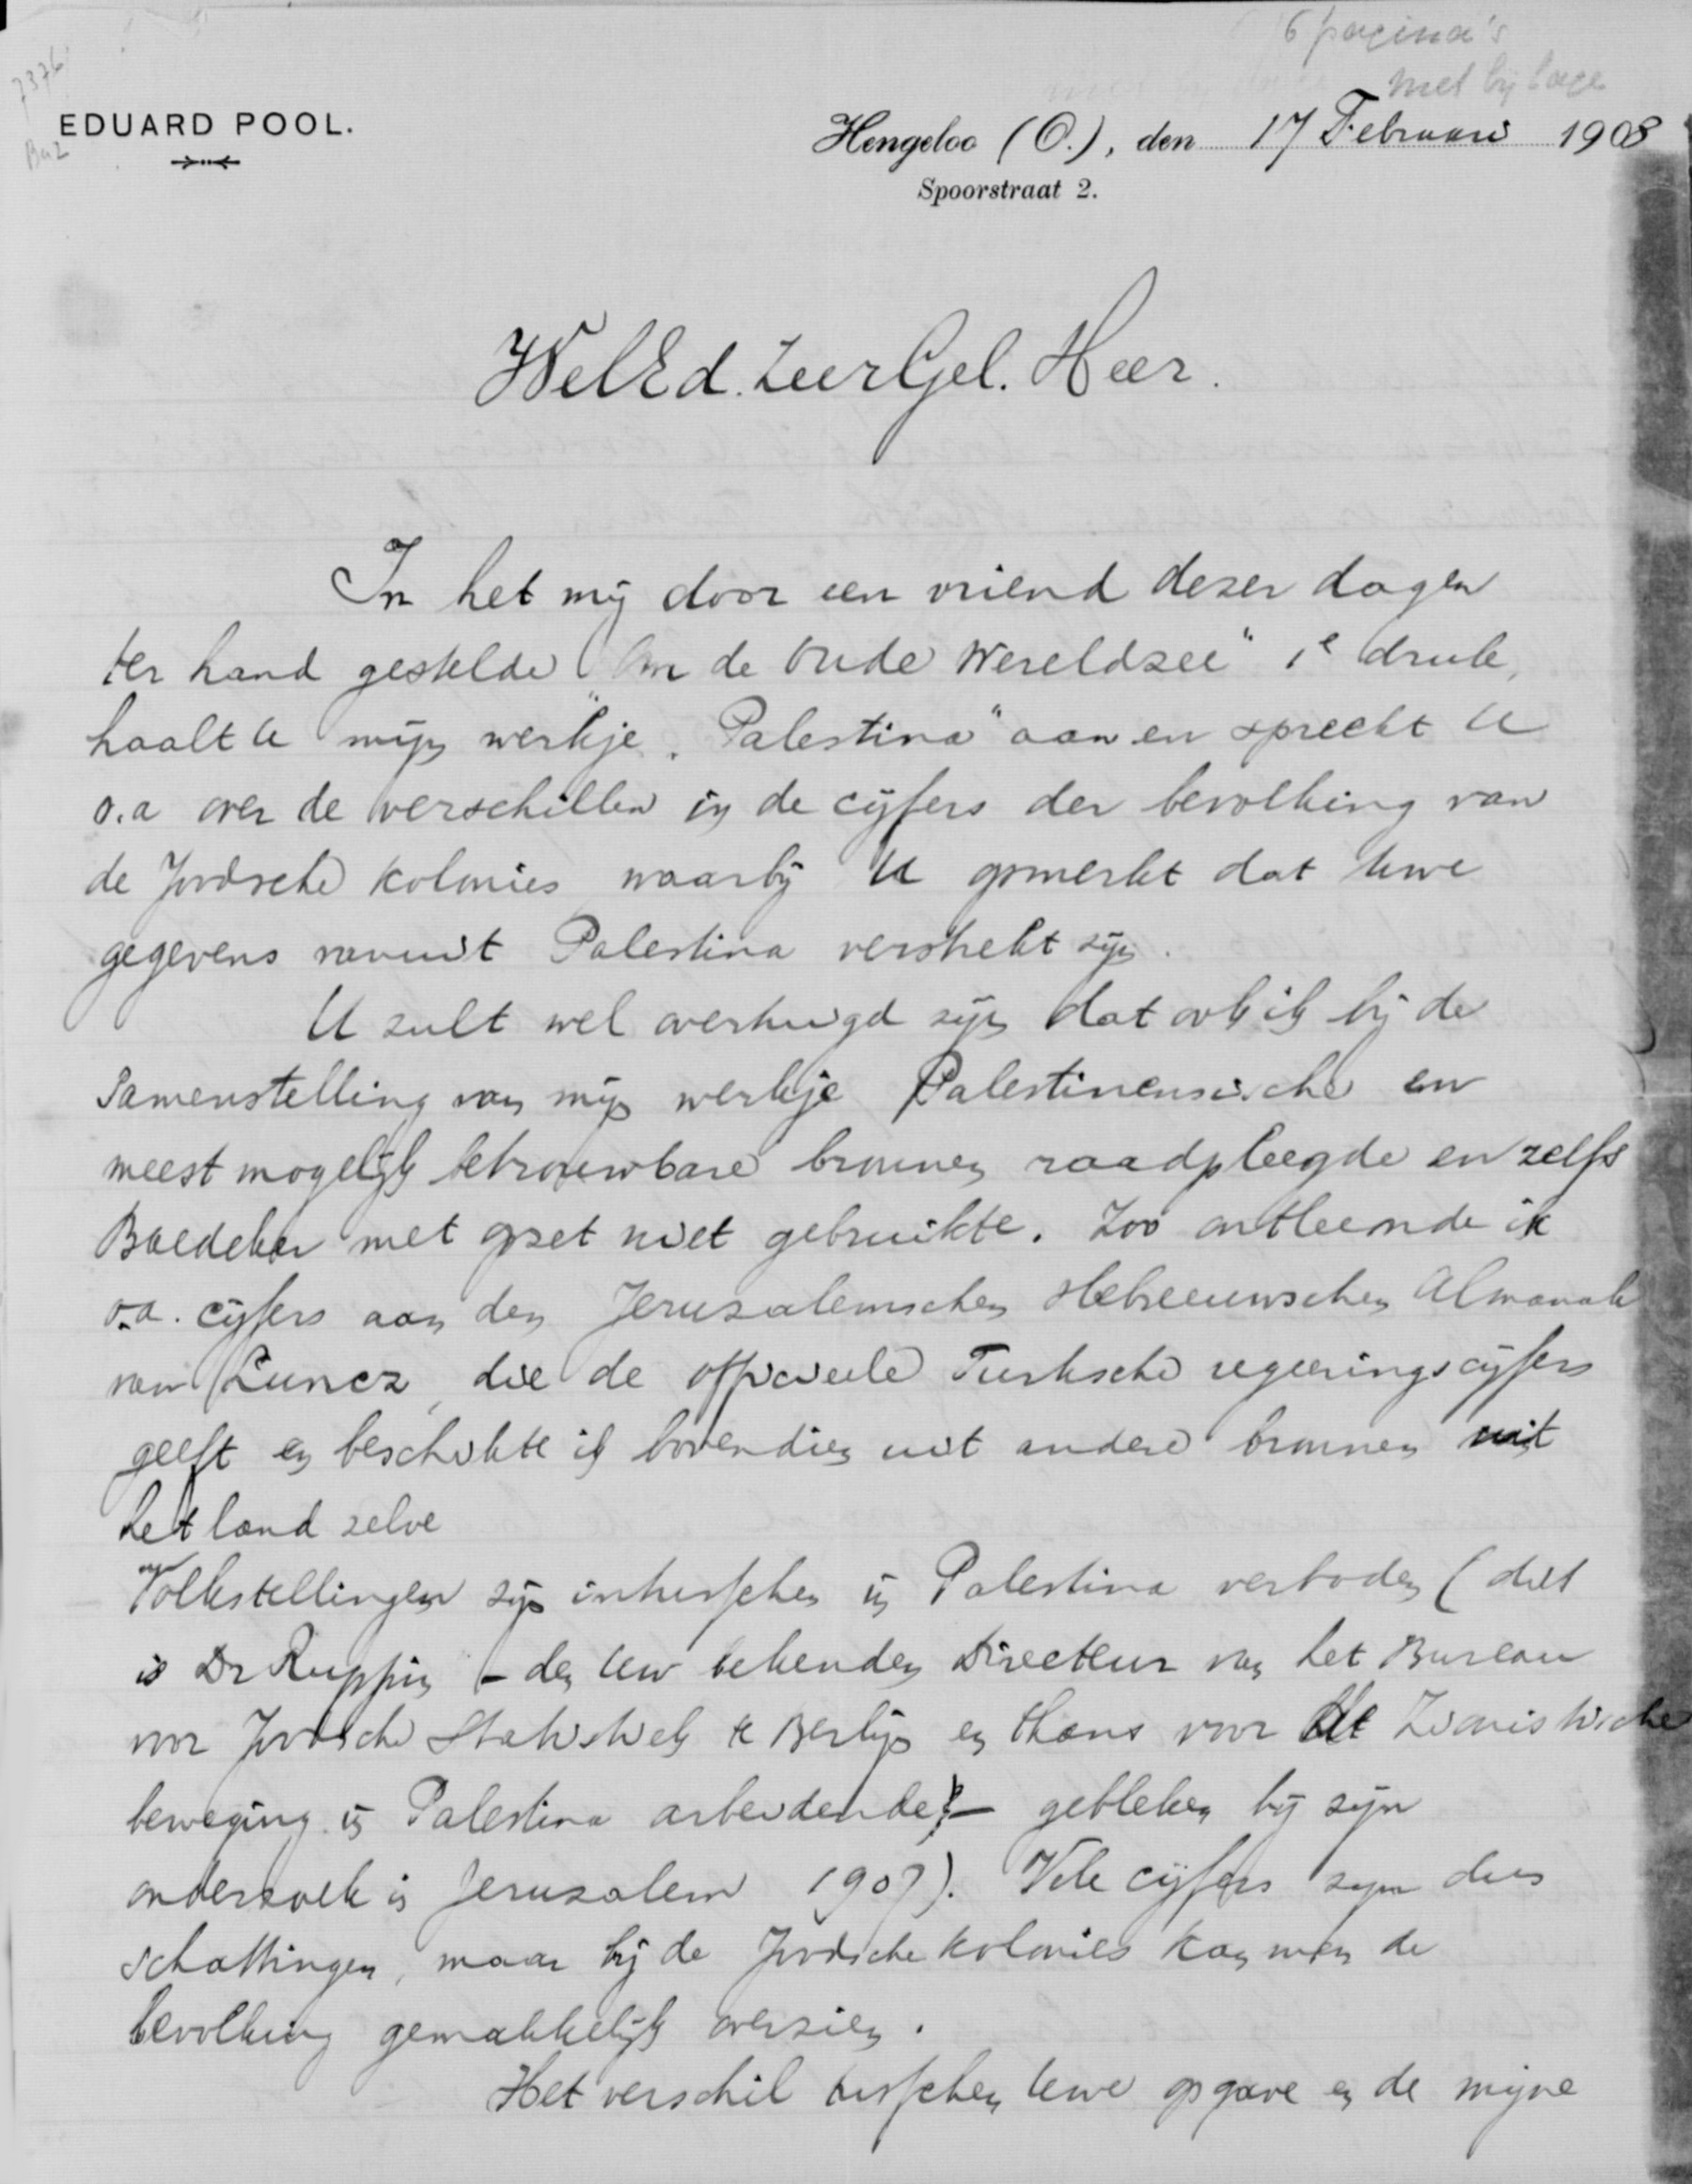 6 pagina's
met bijlage
7376
Ba2
EDUARD POOL.
Hengeloo (O.), den 17 Februari 1908
Spoorstraat 2.
WelEd. ZeerGel. Heer.
In het mij door een vriend dezer dagen
ter hand gestelde "Om de Oude Wereldzee" 1e druk,
haalt U mijn werkje "Palestina" aan en spreekt U
o.a over de verschillen in de cijfers der bevolking van
de Joodsche kolonies waarbij U opmerkt dat Uwe
gegevens vanuit Palestina verstrekt zijn.
U zult wel overtuigd zijn dat ook ik bij de
Samenstelling van mijn werkje Palestinensische en
meest mogelijk betrouwbare bronnen raadpleegde en zelfs
Baedeker met opzet niet gebruikte. Zoo ontleende ik
o.a. cijfers aan den Jeruzalemschen Hebreeuwschen Almanak
van Luncz, die de officieele Turksche regeeringscijfers
geeft en beschikte ik bovendien uit andere bronnen uit
het land zelve
Volkstellingen zijn intusschen in Palestina verboden (dit
is Dr Ruppin - den Uw bekenden Directeur van het Bureau
voor Joodsche Statistiek te Berlijn en thans voor de Zionistische
beweging in Palestina arbeidende - gebleken bij zijn
onderzoek in Jeruzalem 1907). Vele cijfers zijn dus
schattingen, maar bij de Joodsche kolonies kan men de
bevolking gemakkelijk overzien.
Het verschil tusschen Uwe opgave en de mijne